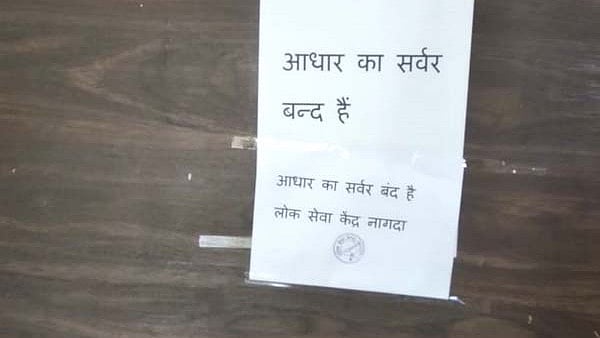 आधार का सर्वर
बन्द हैं
आधार का सर्वर बंद है
लोक सेवा केंद्र नागदा